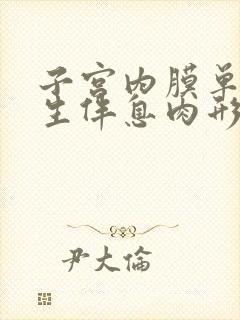 子宫内膜单
生伴息肉形
尹大倫